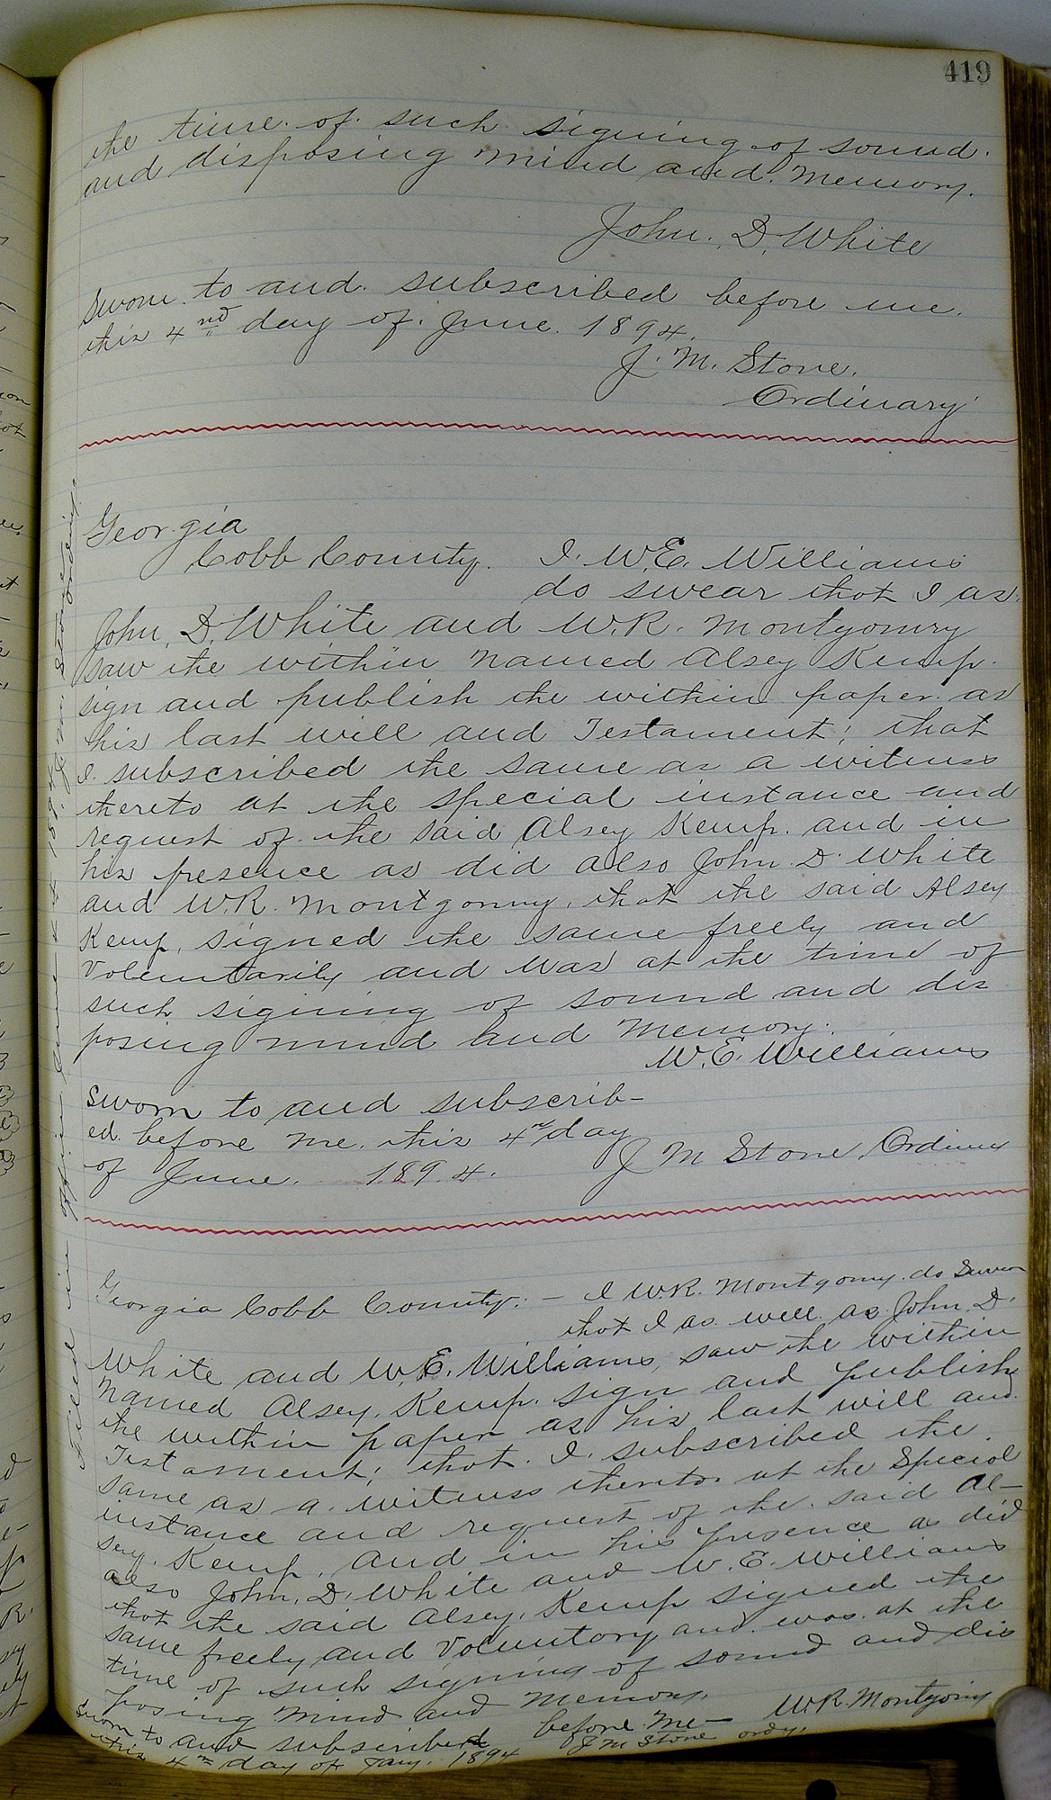 419
the time of such signing of sound
and disposing mind and memory.
John. D. White
Sworn to and subscribed before me.
this 4nd day of June. 1894.
J. M. Stone.
Ordinary
Georgia
Cobb County. I. W.E. Williams
do swear that I as
John. D. White and W.R. Montgomry
saw the within named Alsey Kemp.
sign and publish the within paper as
his last will and Testament; that
I subscribed the same as a witness
thereto at the special instance and
request of the said Alsey Kemp. and in
his presence as did also John. D. White
and W.R. Montgomy. that the said Alsey
Kemp. signed the same freely and
Voluntarily and was at the time of
such signing of sound and dis
posing mind and Memory.
W.E. Williams
Sworn to and subscrib-
ed. before me. this 4th day
of June. 1894. J M Stone Ordinary
Georgia Cobb County: - I W.R. Montgomy. do Swear
that I as well as John. D.
White and W.E. Williams, saw the within
named Alsey. Kemp. sign and publish
the within paper as his last will and
Testament; that. I. subscribed the.
same as a. witness thereto at the Special
instance and request of the. said Al-
sey. Kemp. and in his presence as did
also John. D. White and W. E. Williams
that the said Alsey. Kemp signed the
same freely and Voluntory and was at the
time of such signing of sound and dis
posing mind and memory.
W.R. Montgomy
Sworn to and subscribed before Me-
this 4th day of Jany. 1894 J M Stone ordy.
Filed in office June 4th 189 J M Stone Ordiny.